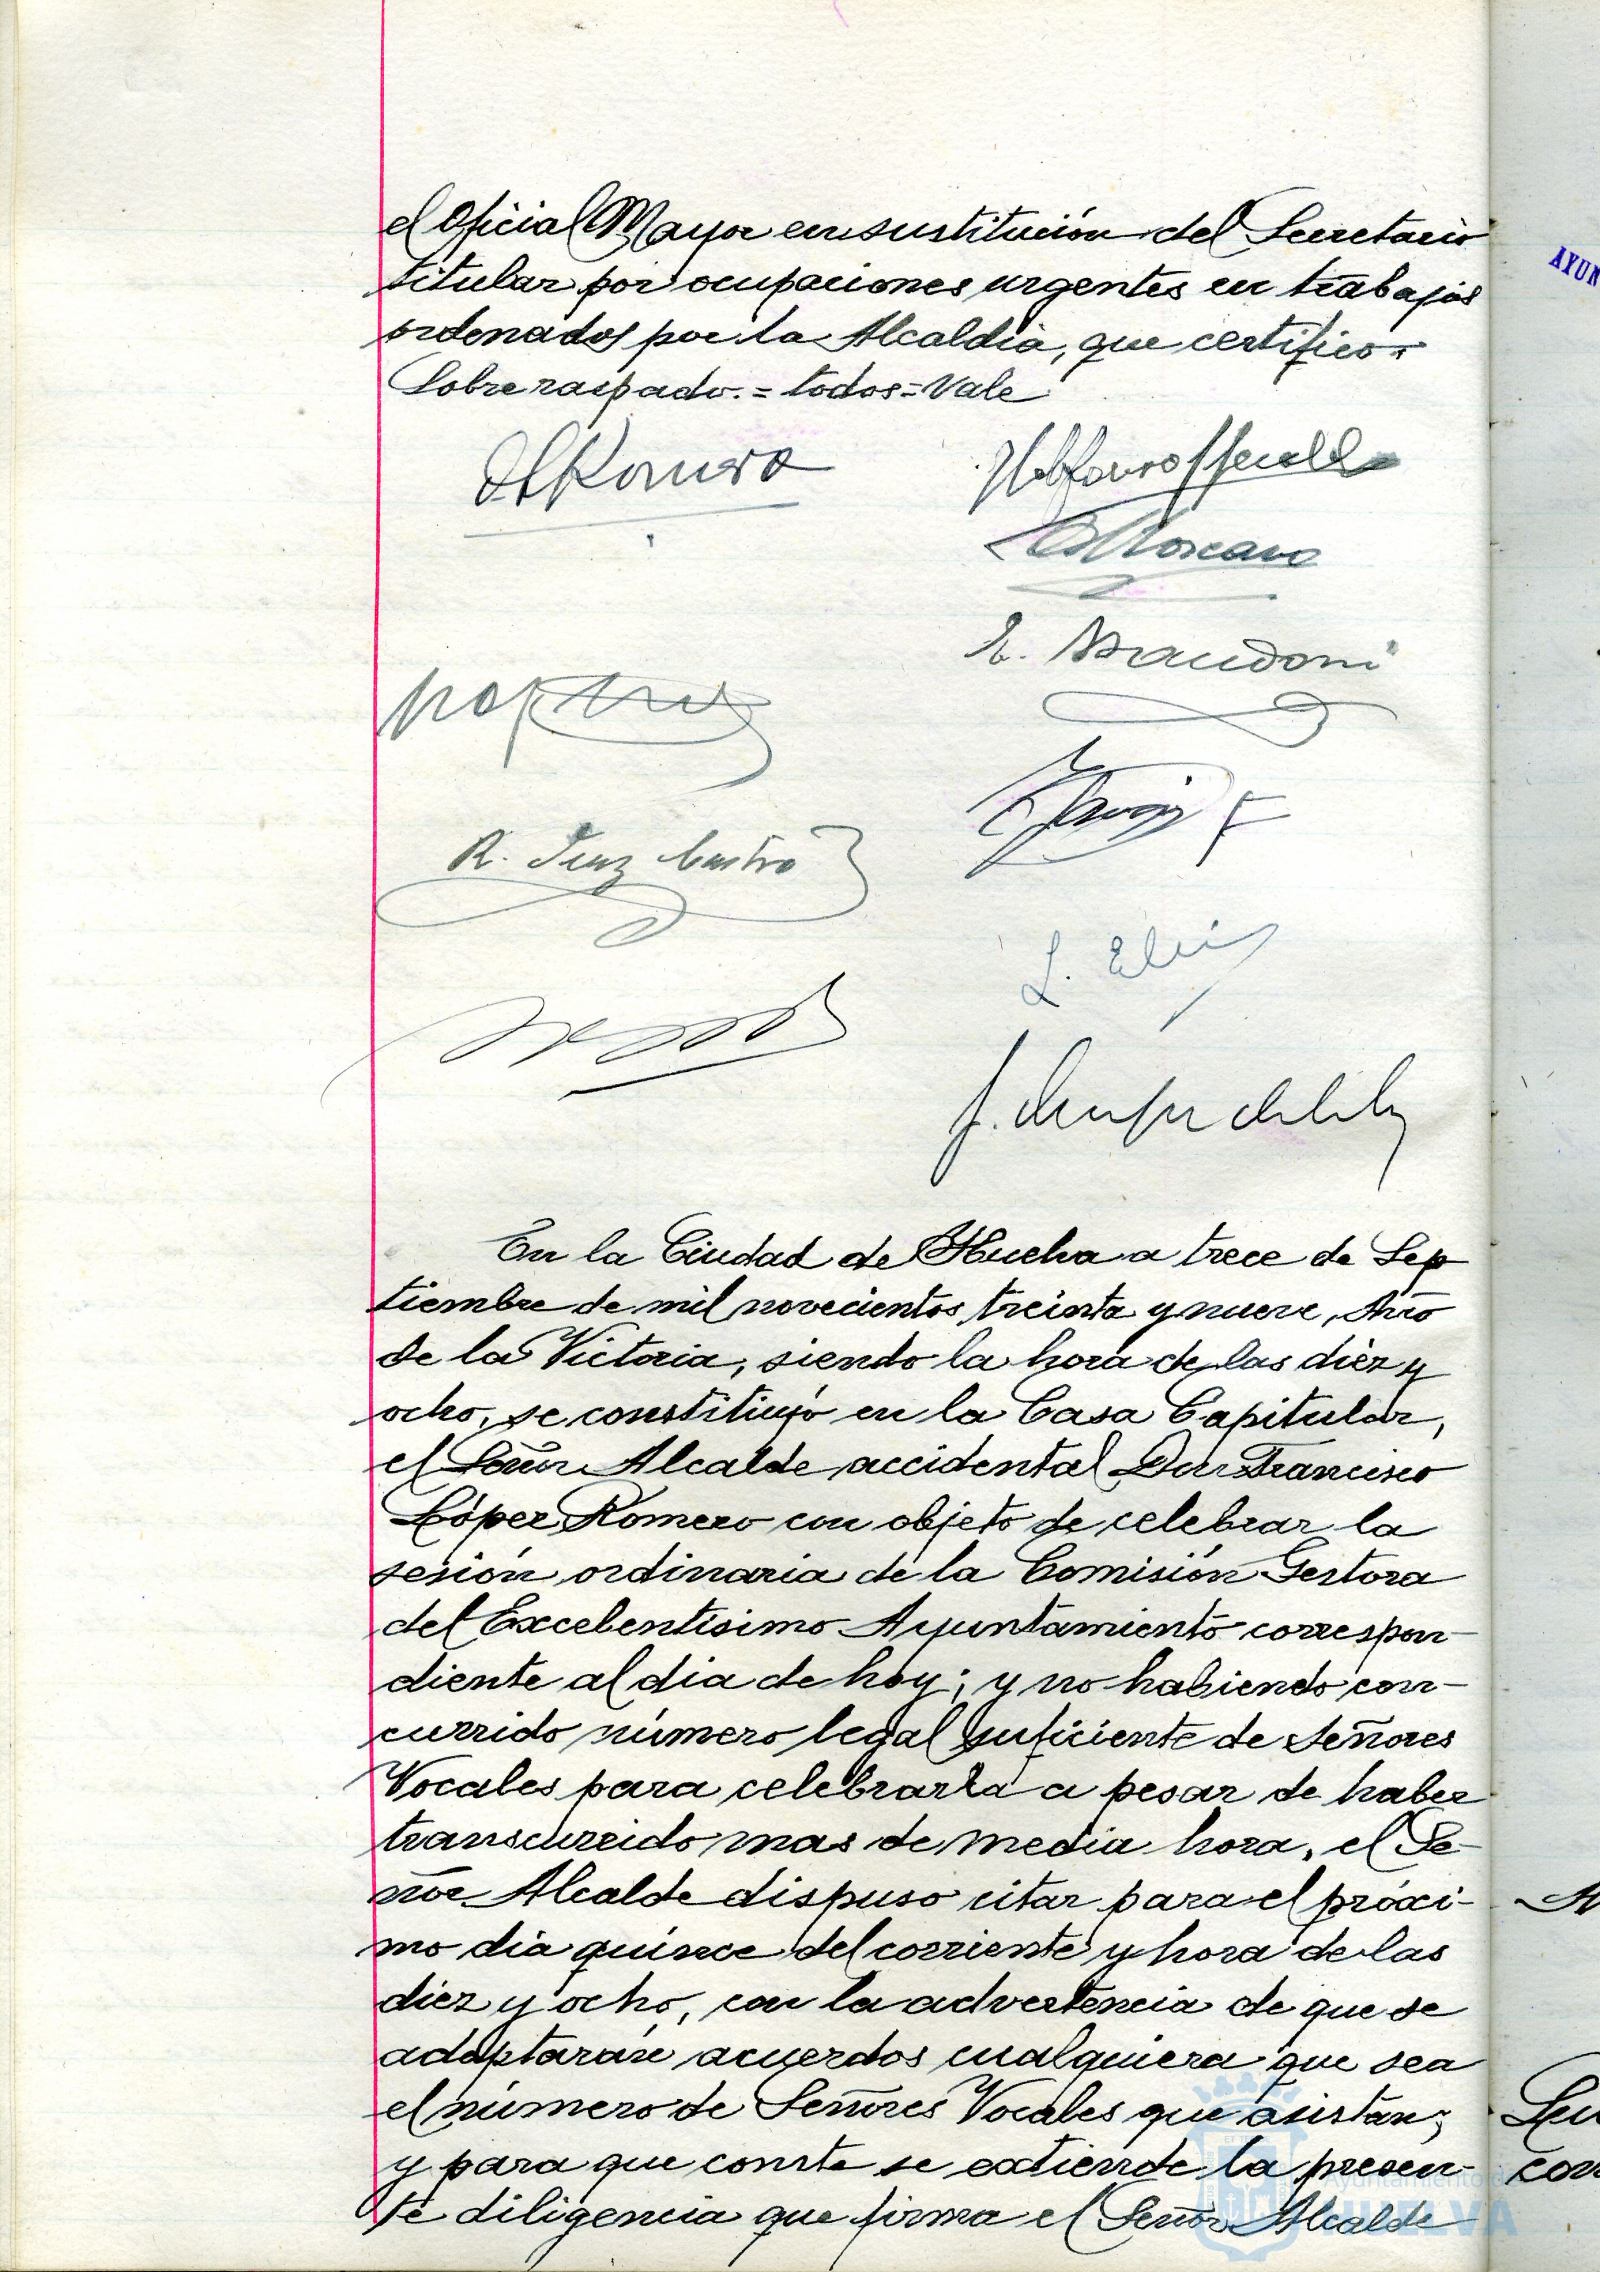 el Oficial Mayor en sustitución del Secretario
titular por ocupaciones urgentes en trabajos
ordenados por la Alcaldia, que certifico.
Sobre raspado.=todos=Vale
Romero
R. Diaz Castro
En la Ciudad de Huelva a trece de Sep
tiembre de mil novecientos treinta y nueve, Año
de la Victoria, siendo la hora de las diez y
ocho, se constituyó en la Casa Capitular,
el Señor Alcalde accidental Don Francisco
López Romero con objeto de celebrar la
sesión ordinaria de la Comisión Gestora
del Excelentisimo Ayuntamiento correspon-
diente al dia de hoy; y no habiendo con-
currido número legal suficiente de Señores
Vocales para celebrarla a pesar de haber
transcurrido mas de media hora, el Se-
ñor Alcalde dispuso citar para el próxi-
mo dia quince del corriente y hora de las
diez y ocho, con la advertencia de que se
adoptarán acuerdos cualquiera que sea
el número de Señores Vocales que asistan;
y para que conste se extiende la presen-
te diligencia que firma el Señor Alcalde
AYUN
Ayuntamiento de
HUELVA